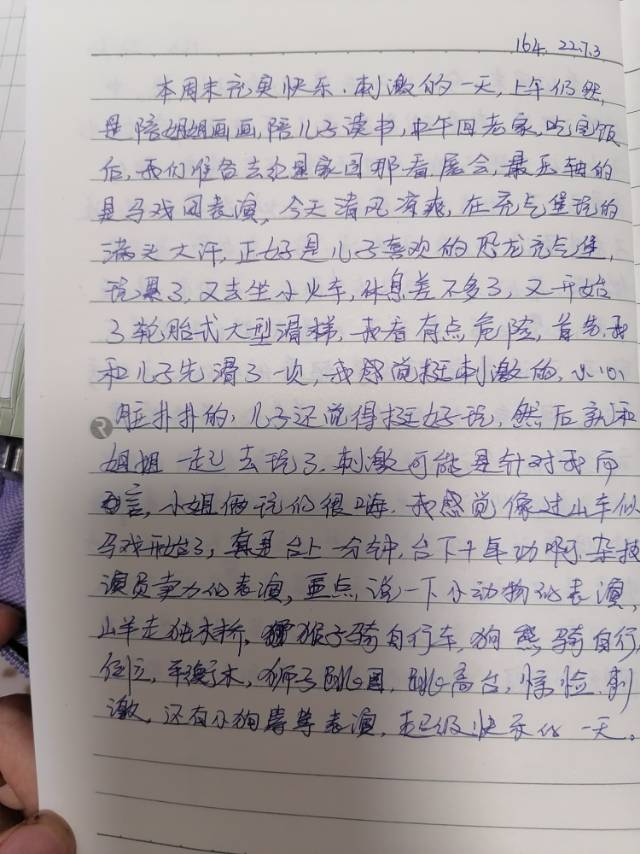 164. 22.7.3
本周末充实快乐、刺激的一天,上午仍然
是陪姐姐画画,陪儿子读书,中午回老家,吃完饭
后,我们准备去 那看展会,最压轴的
是马戏团表演,今天清风凉爽,在充气堡玩的
满头大汗,正好是儿子喜欢的恐龙充气堡,
玩累了,又去坐小火车,休息差不多了,又开始
了轮胎式大型滑梯,我看有点危险,首先,我
和儿子先滑了一次,我感觉挺刺激的,
脏扑扑的,儿子还觉得挺好玩,然后就和
姐姐一起去玩了.刺激可能是针对我而
言,小姐俩玩的很嗨.我感觉像过山车似
马戏开始了,真是台上一分钟,台下十年功啊.杂技
演员卖力的表演,重点说一下小动物的表演,
山羊走独木桥,猴子骑自行车,狗熊骑自行,
平衡木,狮子跳圈,跳高台,惊险、刺
激,还有小狗 等表演,超级快乐的一天。